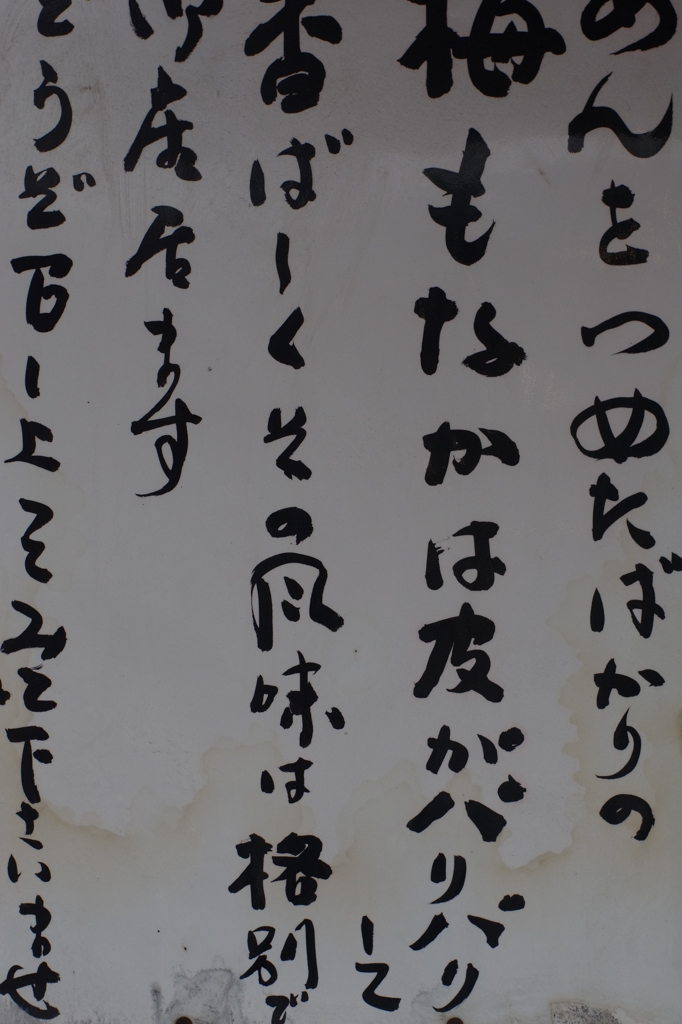 めんをつめたばかりの
梅もなかは皮がパリパリ
して
香ばしくその風味は格別で
御座居ます
どうぞ召し上てみて下さいませ